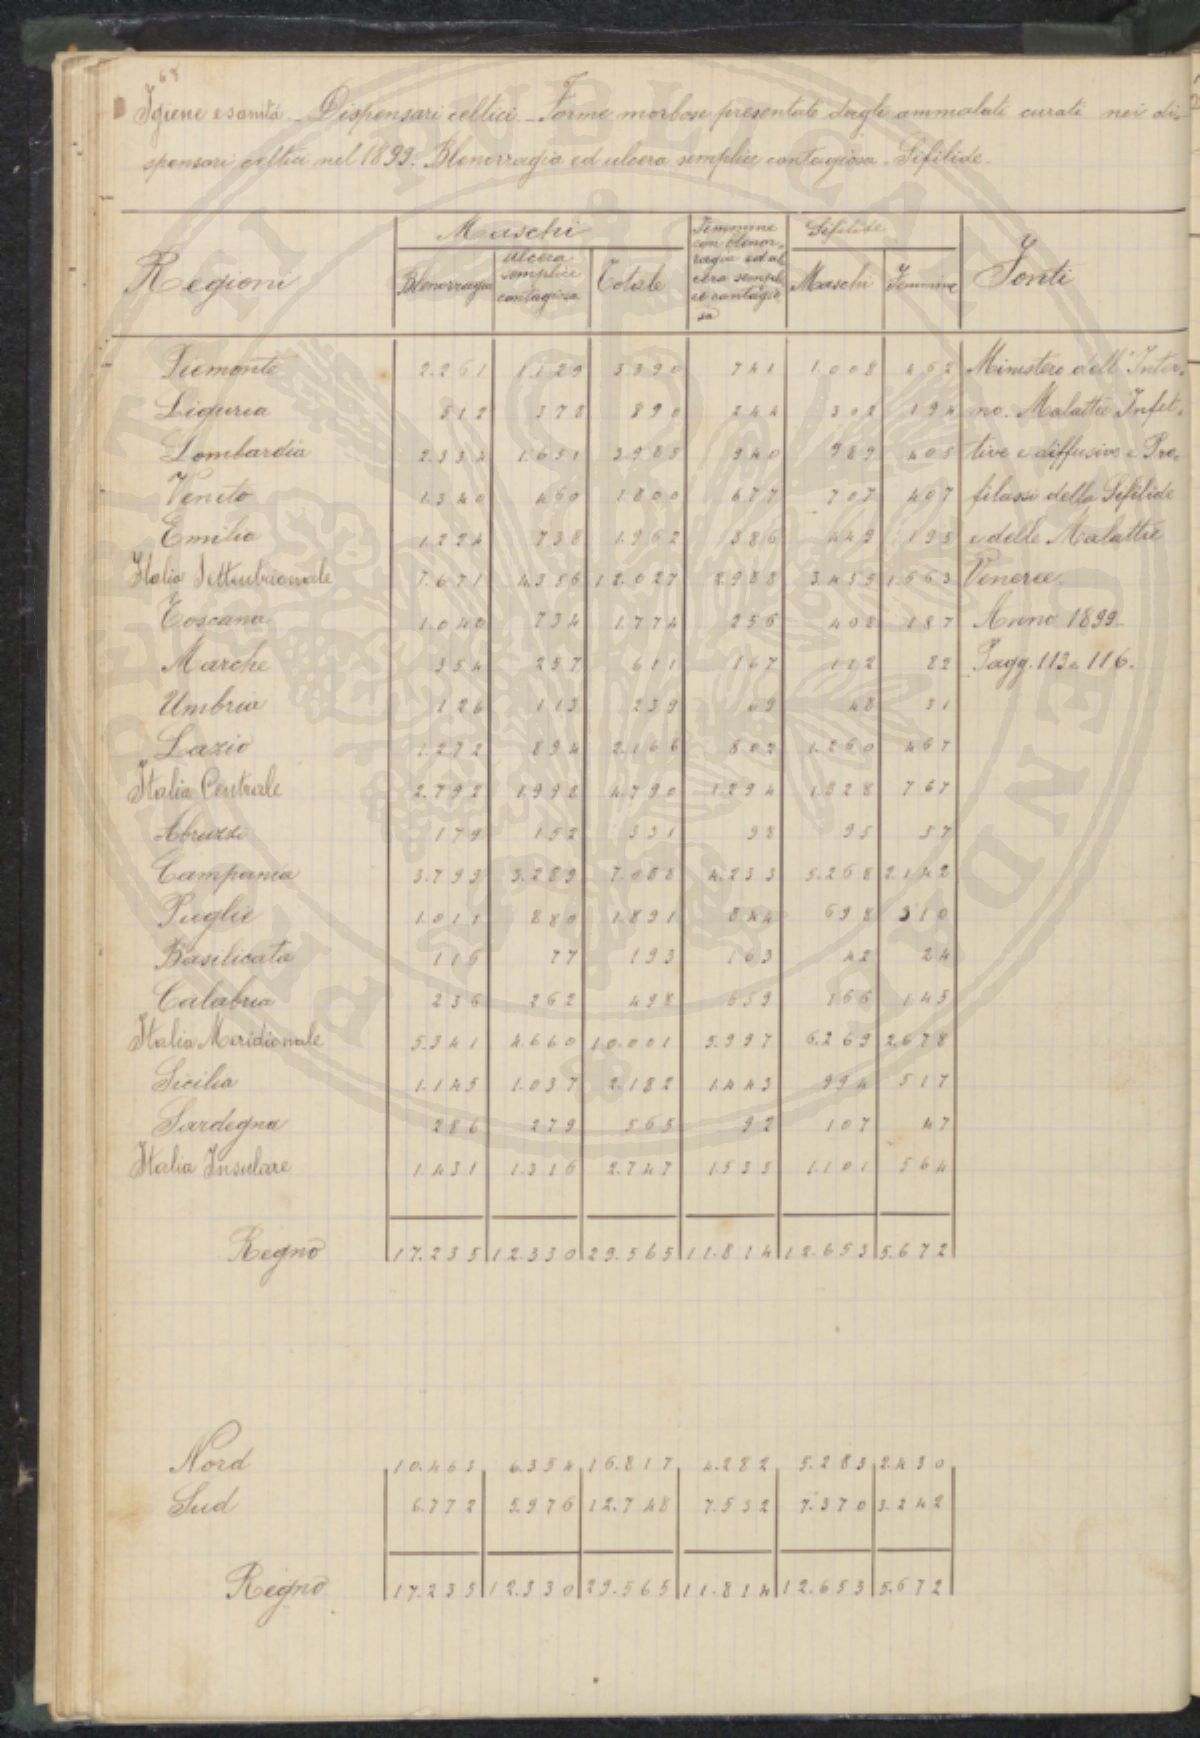 68
Igiene e sanità. _ Dispensari celtici. _ Forme morbose presentate dagli ammalati curati nei di-
spensari celtici nel 1899. Blenorragia ed ulcera semplice contagiosa. Sifilide.
Regioni | Maschi | Femmine con blenorragia ed ulcera semplice contagiosa | Sifilide | Fonti
Blenorragia | ulcera semplice contagiosa | Totale | Maschi | Femmine
Piemonte 2.261 1.129 3.390 741 1.008 462 Ministero dell'Inter-
Liguria 512 378 890 244 302 194 no. Malattie Infet-
Lombardia 2.334 1.651 3.985 940 989 405 tive e diffusive e Pro-
Veneto 1.340 460 1.800 677 707 407 filassi della Sifilide
Emilia 1.224 738 1.962 386 449 195 e delle Malattie
Italia Settentrionale 7.671 4.356 12.027 2.988 3.455 1.663 Veneree.
Toscana 1.040 734 1.774 256 408 187 Anno 1899.
Marche 354 257 611 167 112 82 Pagg. 113 a 116.
Umbria 126 113 239 69 48 31
Lazio 1.272 894 2.166 802 1.260 467
Italia Centrale 2.792 1.998 4.790 1.294 1.828 767
Abruzzi 179 152 331 98 95 57
Campania 3.799 3.289 7.088 4.233 5.268 2.142
Puglie 1.011 880 1.891 844 698 310
Basilicata 116 77 193 163 42 24
Calabria 236 262 498 659 166 145
Italia Meridionale 5.341 4.660 10.001 5.997 6.269 2.678
Sicilia 1.145 1.037 2.182 1.443 994 517
Sardegna 286 279 565 92 107 47
Italia Insulare 1.431 1.316 2.747 1.535 1.101 564
Regno 17.235 12.330 29.565 11.814 12.653 5.672
Nord 10.463 6.354 16.817 4.282 5.283 2.430
Sud 6.772 5.976 12.748 7.532 7.370 3.242
Regno 17.235 12.330 29.565 11.814 12.653 5.672